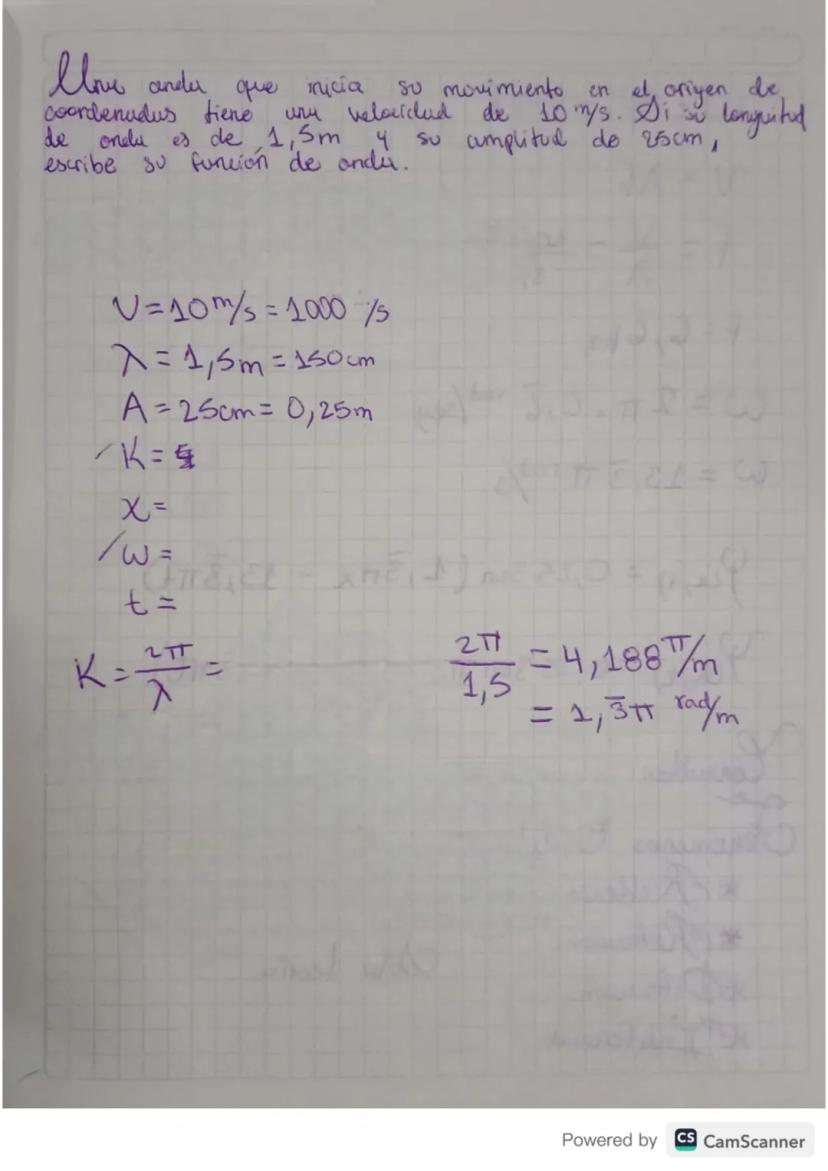 Una onda que inicia su movimiento en el origen de
coordenadas tiene una velocidad de 10 m/s. Si su longuitud
de onda es de 1,5m y su amplitud de 25cm,
escribe su función de onda.
V = 10 m/s = 1000 /s
λ = 1,5m = 150cm
A = 25cm = 0,25m
K =
x =
w =
t =
K = 2π/λ = 2π/1,5 = 4,188 π/m
= 1,3̄π rad/m
Powered by CS CamScanner